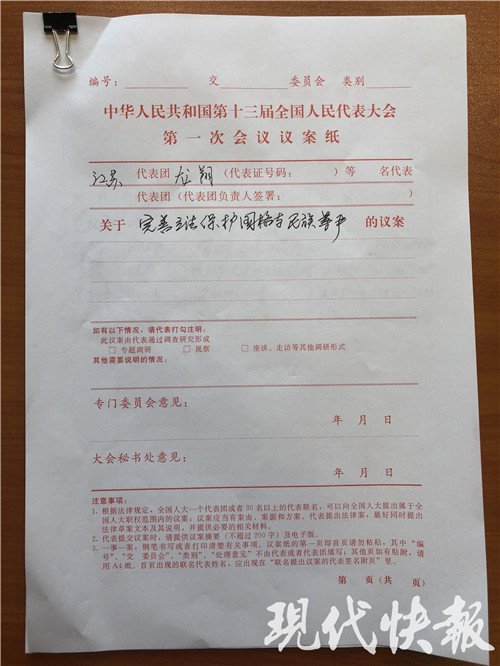 编号：　　　　交　　　　委员会　类别
中华人民共和国第十三届全国人民代表大会
第一次会议议案纸
江苏 代表团 龙翔（代表证号码：　　）等　　名代表
代表团（代表团负责人签署：　　　　）
关于 完善立法保护国格与民族尊严 的议案
如有以下情况，请代表打勾注明：
此议案由代表通过调查研究形成
□ 专题调研　□ 视察　□ 座谈、走访等其他调研形式
其他需要说明的情况：
专门委员会意见：
年　月　日
大会秘书处意见：
年　月　日
注意事项：
1. 根据法律规定，全国人大一个代表团或者 30 名以上的代表联名，可以向全国人大提出属于全
国人大职权范围内的议案；议案应当有案由、案据和方案。代表提出法律案，最好同时提出
法律草案文本及其说明，并提供必要的相关材料。
2. 代表提交议案时，请提供议案摘要（不超过 200 字）及电子版。
3. 一事一案，钢笔书写或者打印清楚有关事项。议案纸的第一页即首页请勿粘贴，其中“编
号”、“交　委员会”、“类别”、“处理意见”不由代表或者代表团填写；其他页如有贴附，请
用 A4 纸，首页出现的联名代表姓名，应出现在“联名提出议案的代表签名附页”里。
第　页（共　页）
现代快报